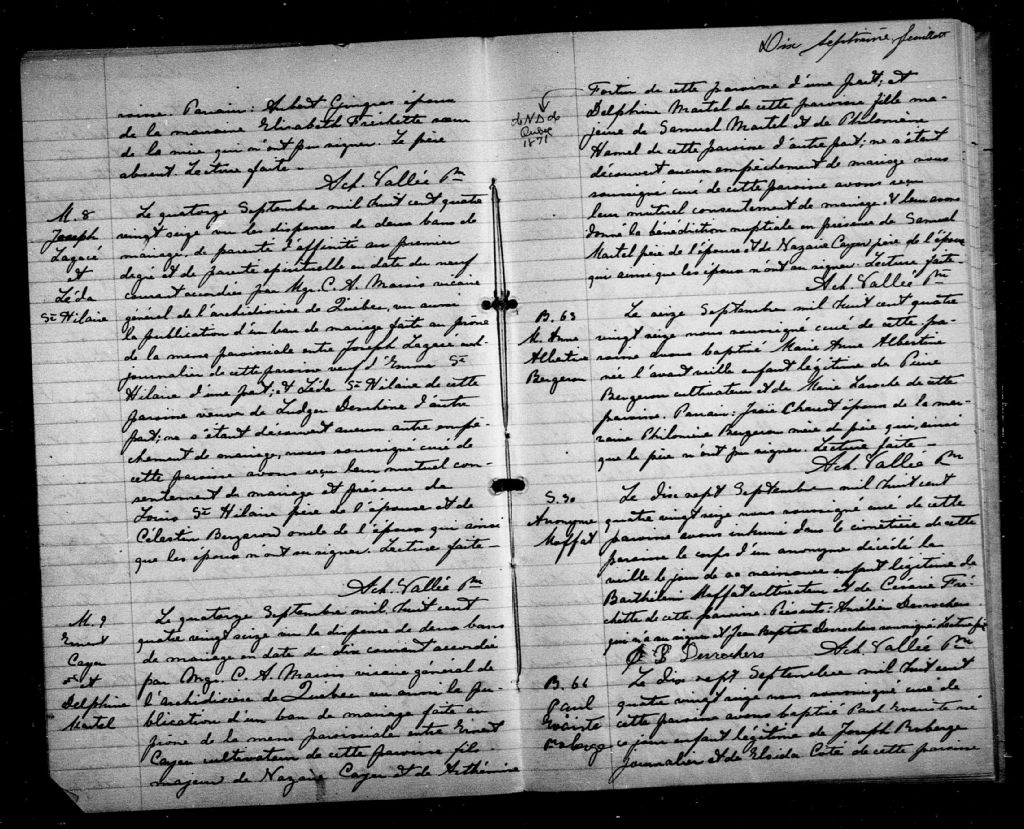 Dix septième feuillet
mine. Parrain: Hubert Gingras époux
de la marraine Elisabeth Fréchette sœur
de la mère qui n'ont pu signer. Le père
absent. Lecture faite -
Ach. Vallée Ptre
M. 8
Joseph
Lagacé
&
Léda
St Hilaire
Le quatorze Septembre mil huit cent quatre
vingt seize vu les dispenses de deux bans de
mariage, de parenté d'affinité au premier
degré et de parenté spirituelle en date du neuf
courant accordées par Mgr C. A. Marois vicaire
général de l'archidiocèse de Québec, vu aussi
la publication d'un ban de mariage faite au prône
de la messe paroissiale entre Joseph Lagacé
journalier de cette paroisse veuf d'Emma St
Hilaire d'une part; & Léda St Hilaire de cette
paroisse veuve de Ludger Deschène d'autre
part; ne s'étant découvert aucun autre empê-
chement de mariage, nous soussigné curé de
cette paroisse avons reçu leur mutuel con-
sentement de mariage en présence de
Louis St Hilaire père de l'épouse et de
Célestin Bergeron oncle de l'époux qui ainsi
que les époux n'ont su signer. Lecture faite -
Ach. Vallée Ptre
M. 9
Ernest
Cayer
&
Delphine
Martel
Le quatorze Septembre mil huit cent
quatre vingt seize vu la dispense de deux bans
de mariage en date du dix courant accordée
par Mgr C. A. Marois vicaire général de
l'archidiocèse de Québec vu aussi la pu-
blication d'un ban de mariage faite au
prône de la messe paroissiale entre Ernest
Cayer cultivateur de cette paroisse fils
majeur de Nazaire Cayer et de Arthémise
de N D de
Québec
1871
Fortier de cette paroisse d'une part; et
Delphine Martel de cette paroisse fille ma-
jeure de Samuel Martel et de Philomène
Hamel de cette paroisse d'autre part; ne s'étant
découvert aucun empêchement de mariage nous
soussigné curé de cette paroisse avons reçu
leur mutuel consentement de mariage & leur avons
donné la bénédiction nuptiale en présence de Samuel
Martel père de l'épouse & de Nazaire Cayer père de l'époux
qui ainsi que les époux n'ont su signer. Lecture faite
Ach. Vallée Ptre
B. 65
M. Anne
Albertine
Bergeron
Le seize Septembre mil huit cent quatre
vingt seize nous soussigné curé de cette pa-
roisse avons baptisé Marie Anne Albertine
née l'avant veille enfant légitime de Pierre
Bergeron cultivateur et de Marie Laroche de cette
paroisse. Parrain: Isaïe Charest époux de la mar-
raine Philomène Bergeron nièce du père qui, ainsi
que le père n'ont pu signer. Lecture faite -
Ach. Vallée Ptre
S. 30
Anonyme
Moffat
Le dix sept Septembre mil huit cent
quatre vingt seize nous soussigné curé de cette
paroisse avons inhumé dans le cimetière de cette
paroisse le corps d'un anonyme décédé la
veille le jour de sa naissance enfant légitime de
Barthélémi Moffat cultivateur et de Césarie Fré-
chette de cette paroisse. Présents: Aurélien Desrochers
qui n'a su signer & Jean Baptiste Desrochers soussigné Lecture faite
J B Desrochers Ach. Vallée Ptre
B. 66
Paul
Evariste
Roberge
Le dix sept Septembre mil huit cent
quatre vingt seize nous soussigné curé de
cette paroisse avons baptisé Paul Evariste né
ce jour enfant légitime de Joseph Roberge
journalier et de Elzida Coté de cette paroisse